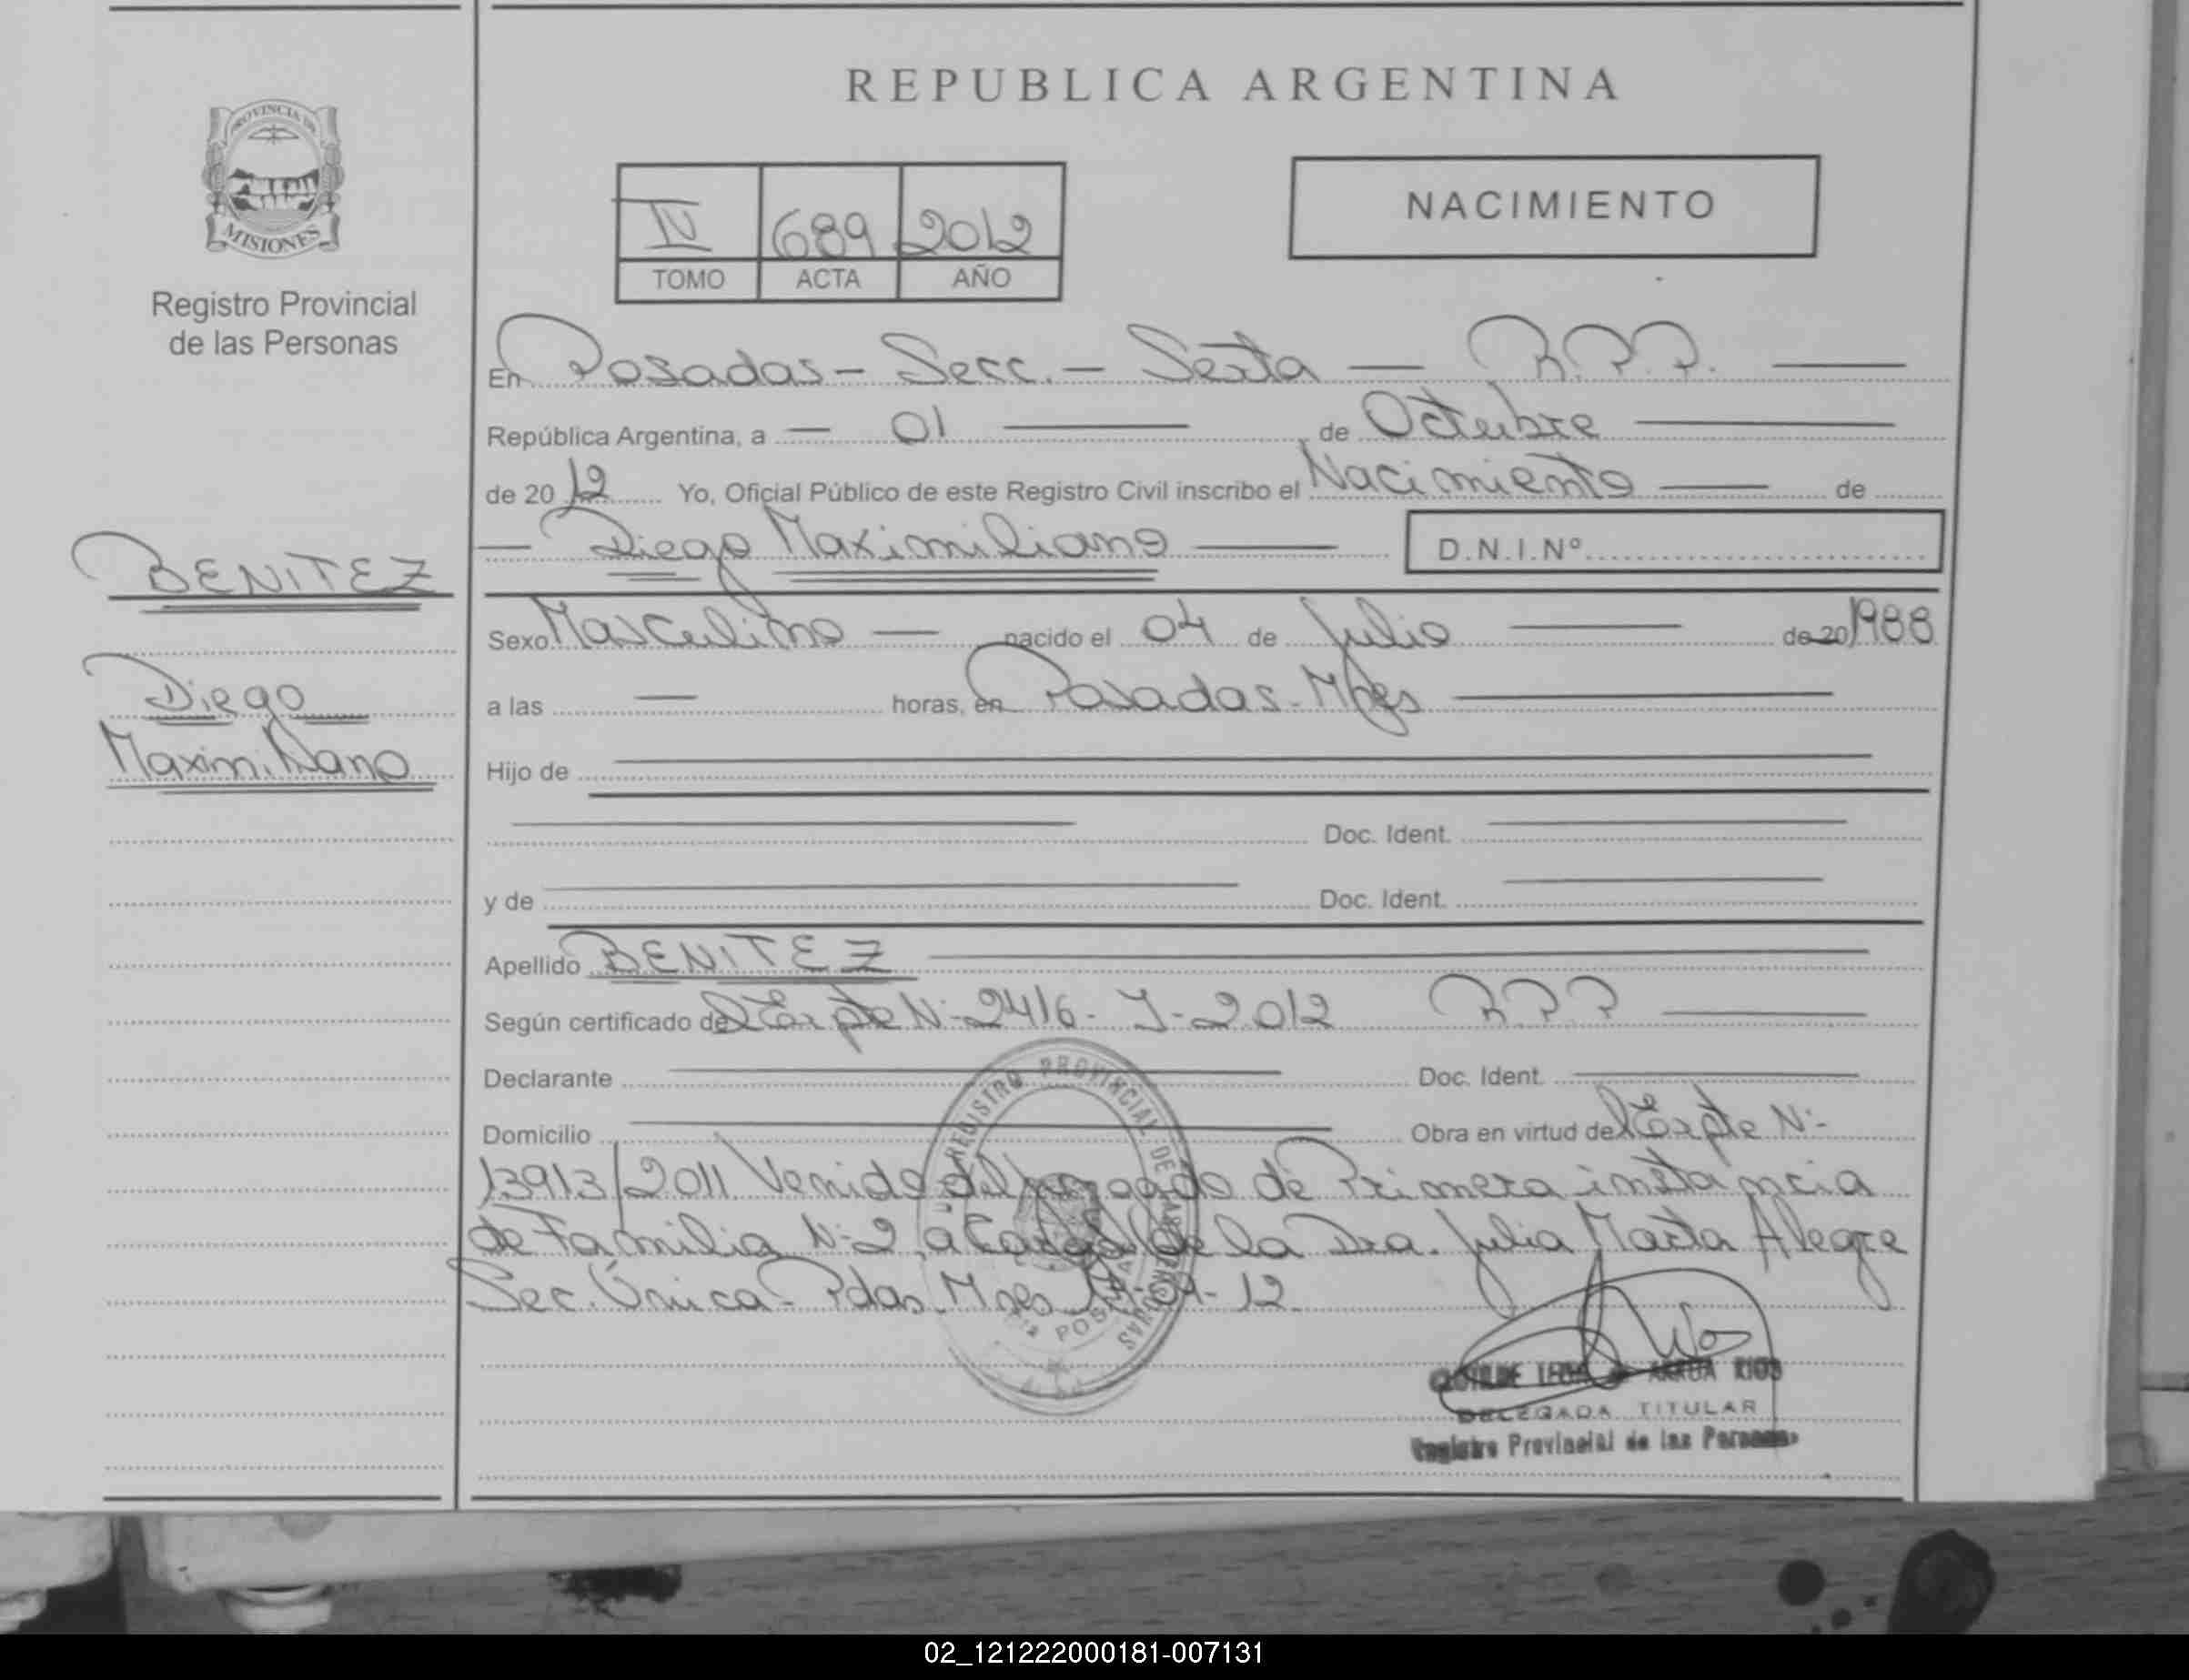 REPUBLICA ARGENTINA
PROVINCIA DE
MISIONES
Registro Provincial
de las Personas
IV 689 2012
TOMO ACTA AÑO
NACIMIENTO
En Posadas - Secc. - Sexta - R.P.P.
República Argentina, a - 01 de Octubre
de 2012 Yo, Oficial Público de este Registro Civil inscribo el Nacimiento de
Diego Maximiliano D.N.I.Nº
BENITEZ
Diego
Maximiliano
Sexo Masculino - nacido el 04 de Julio de 20 1988
a las - horas, en Posadas - Mnes
Hijo de
Doc. Ident.
y de Doc. Ident.
Apellido BENITEZ
Según certificado del Expte N- 2416 - J - 2012 R.P.P
Declarante Doc. Ident.
Domicilio Obra en virtud del Expte N-
13913/2011 Venido del Juzgado de Primera instancia
de Familia N-2, a Cargo de la Dra. Julia Marta Alegre
Sec. Única - Pdas Mnes
REGISTRO PROVINCIAL DE LAS PERSONAS
ARRUA RIOS
DELEGADA TITULAR
Registro Provincial de las Personas
02_121222000181-007131